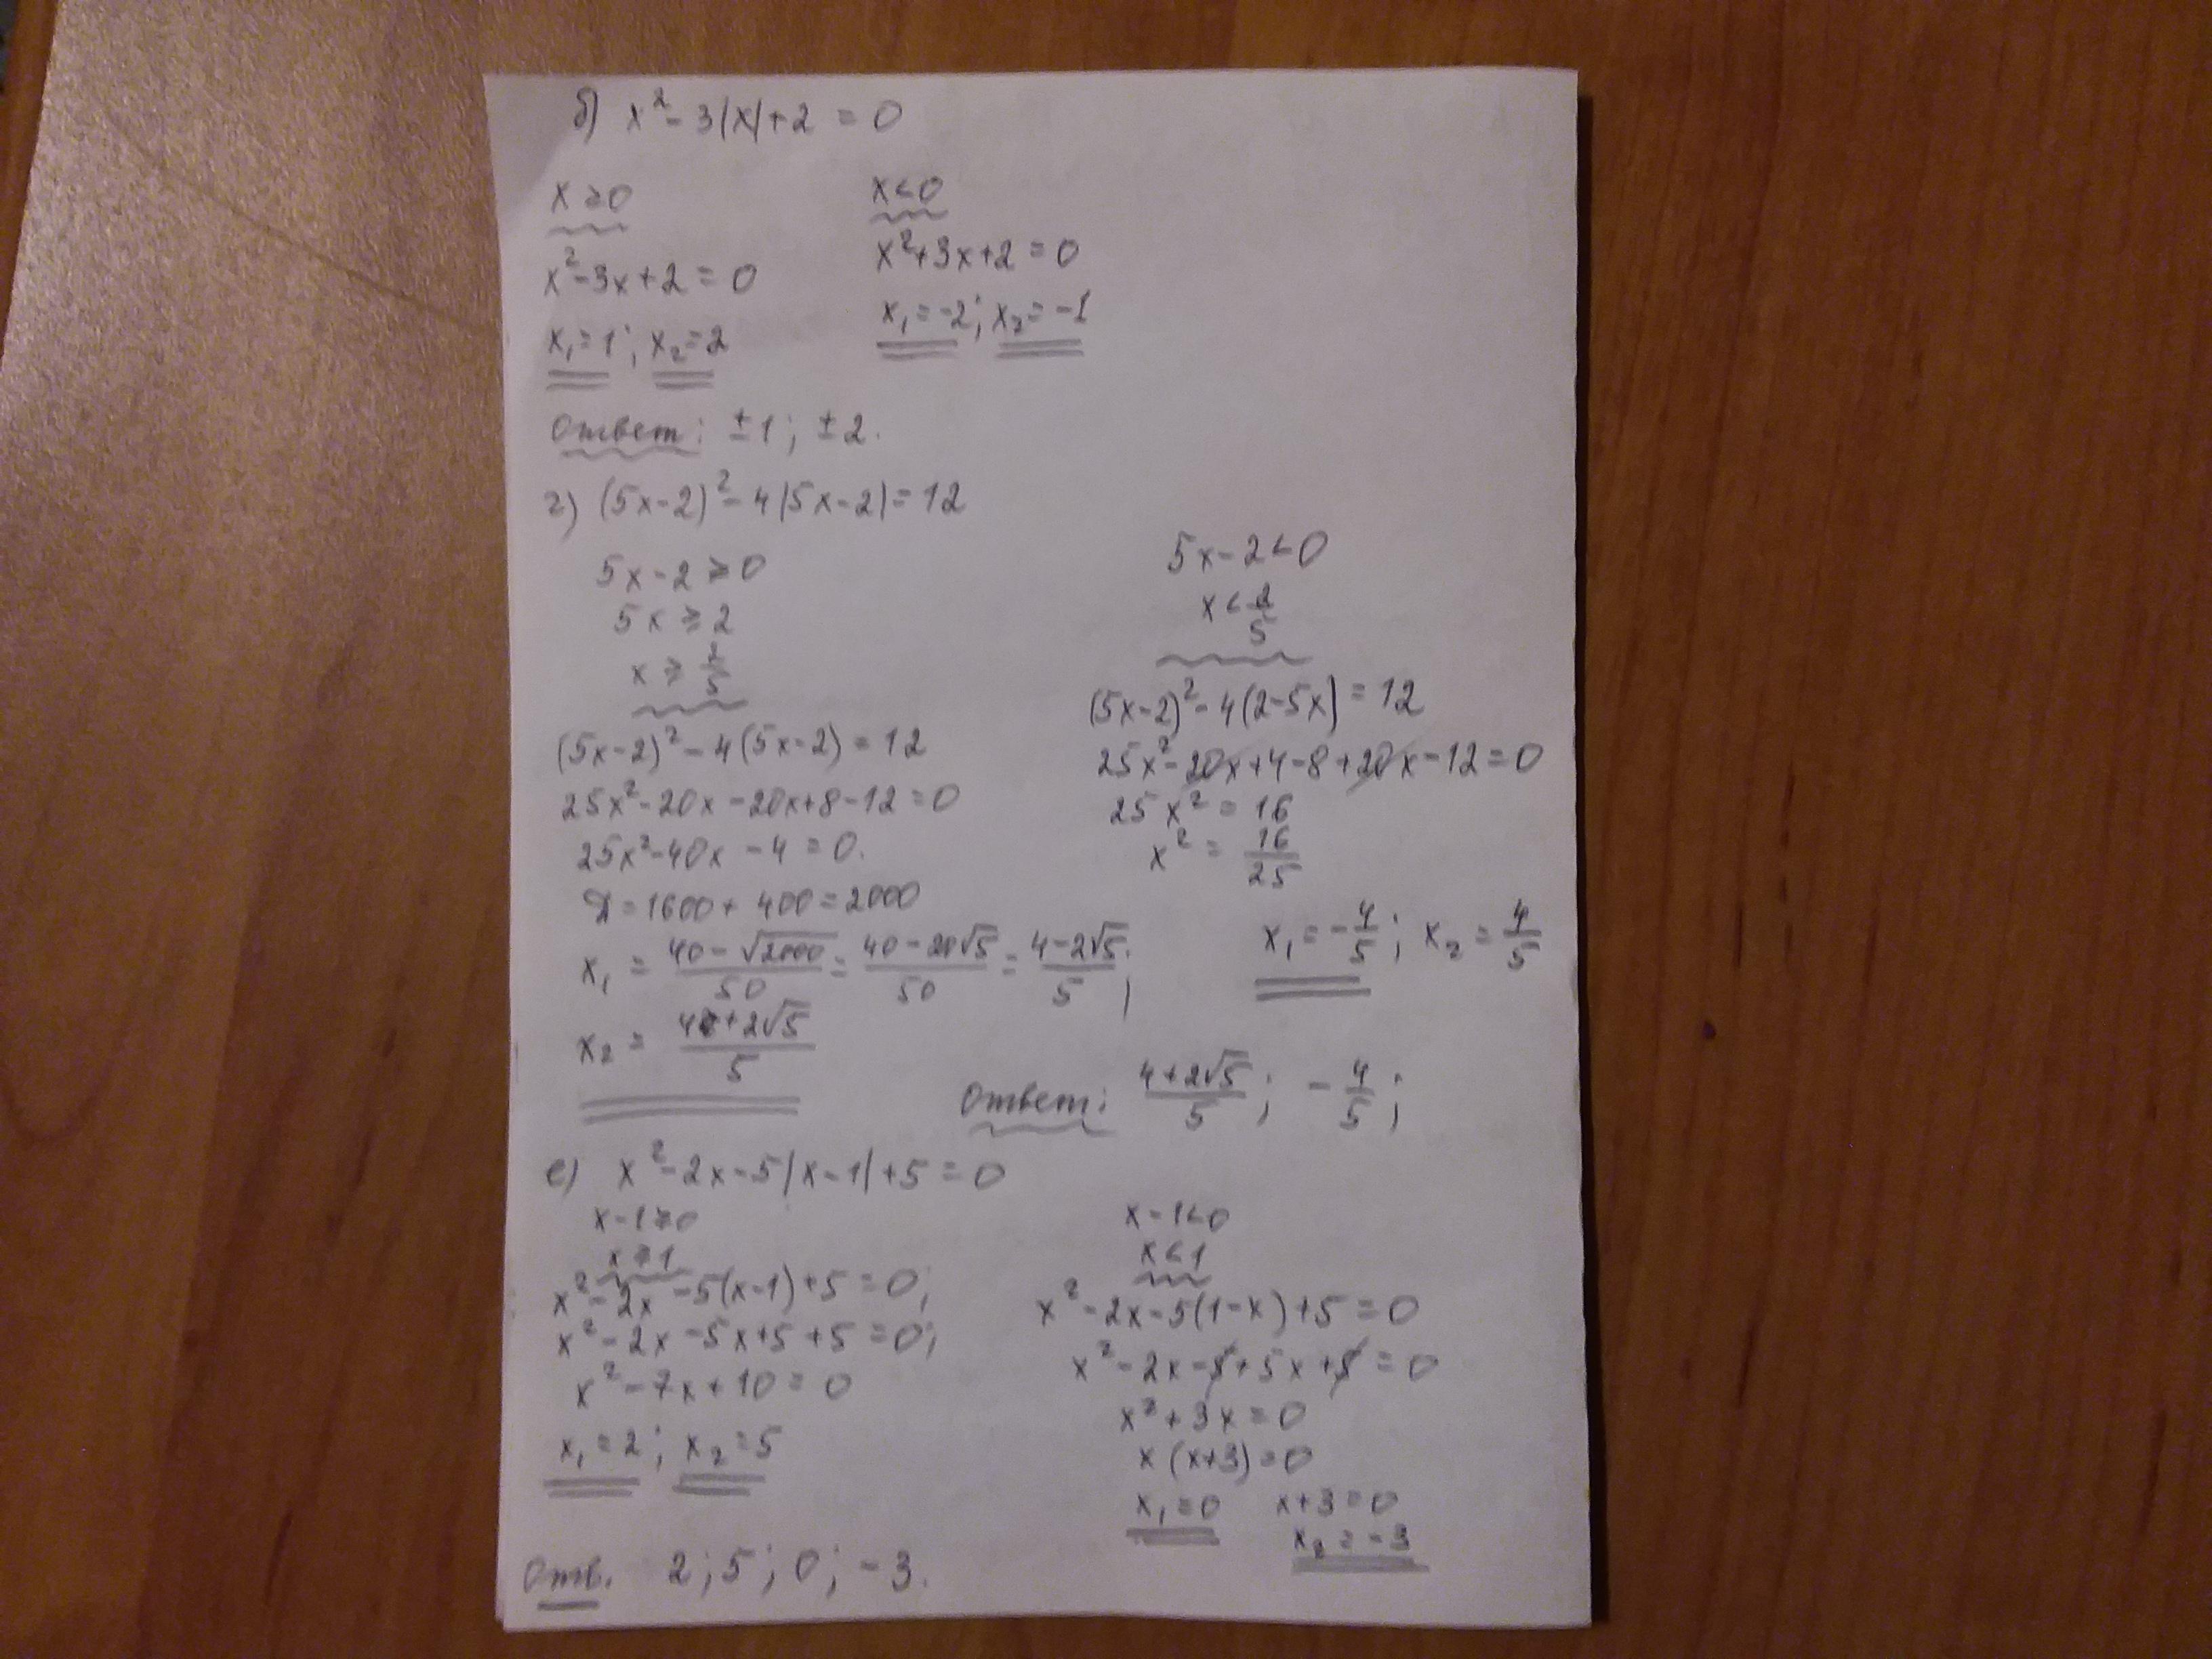 б) x² - 3|x| + 2 = 0
x ≥ 0
x² - 3x + 2 = 0
x₁ = 1; x₂ = 2
x < 0
x² + 3x + 2 = 0
x₁ = -2; x₂ = -1
Ответ: ±1; ±2.
г) (5x - 2)² - 4|5x - 2| = 12
5x - 2 ≥ 0
5x ≥ 2
x ≥ 2/5
(5x - 2)² - 4(5x - 2) = 12
25x² - 20x - 20x + 8 - 12 = 0
25x² - 40x - 4 = 0.
D = 1600 + 400 = 2000
x₁ = (40 - √2000)/50 = (40 - 20√5)/50 = (4 - 2√5)/5;
x₂ = (4 + 2√5)/5
5x - 2 < 0
x < 2/5
(5x - 2)² - 4(2 - 5x) = 12
25x² - 20x + 4 - 8 + 20x - 12 = 0
25x² = 16
x² = 16/25
x₁ = -4/5; x₂ = 4/5
Ответ: (4 + 2√5)/5; -4/5;
е) x² - 2x - 5|x - 1| + 5 = 0
x - 1 ≥ 0
x ≥ 1
x² - 2x - 5(x - 1) + 5 = 0;
x² - 2x - 5x + 5 + 5 = 0;
x² - 7x + 10 = 0
x₁ = 2; x₂ = 5
x - 1 < 0
x < 1
x² - 2x - 5(1 - x) + 5 = 0
x² - 2x - 5 + 5x + 5 = 0
x² + 3x = 0
x(x + 3) = 0
x₁ = 0 x + 3 = 0
x₂ = -3
Отв. 2; 5; 0; -3.